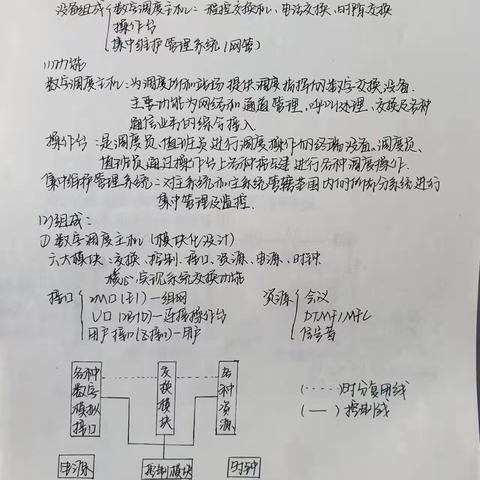 设备组成{数字调度主机：程控交换机、电话交换、时隙交换
操作台
集中维护管理系统(网管)
(1)功能
数字调度主机：为调度所和站场提供调度指挥的数字交换设备.
主要功能为网络和通道管理、呼叫处理、交换及各种
通信业务的综合接入
操作台：是调度员、值班员进行调度操作的终端设备、调度员、
值班员通过操作台上各种按键进行各种调度操作.
集中维护管理系统：对主系统和主系统管辖范围内的所有分系统进行
集中管理及监控.
(2)组成：
① 数字调度主机 (模块化设计)
六大模块：交换、控制、接口、资源、电源、时钟
核心,实现系统交换功能
接口{2M口(E1)—组网
U口(2B+D)—连接操作台
用户接口(Z接口)—用户
资源{会议
DTMF/MFC
信号音
各种数字模拟接口
交换模块
各种资源
(-----)时分复用线
(—)控制线
电源
控制模块
时钟